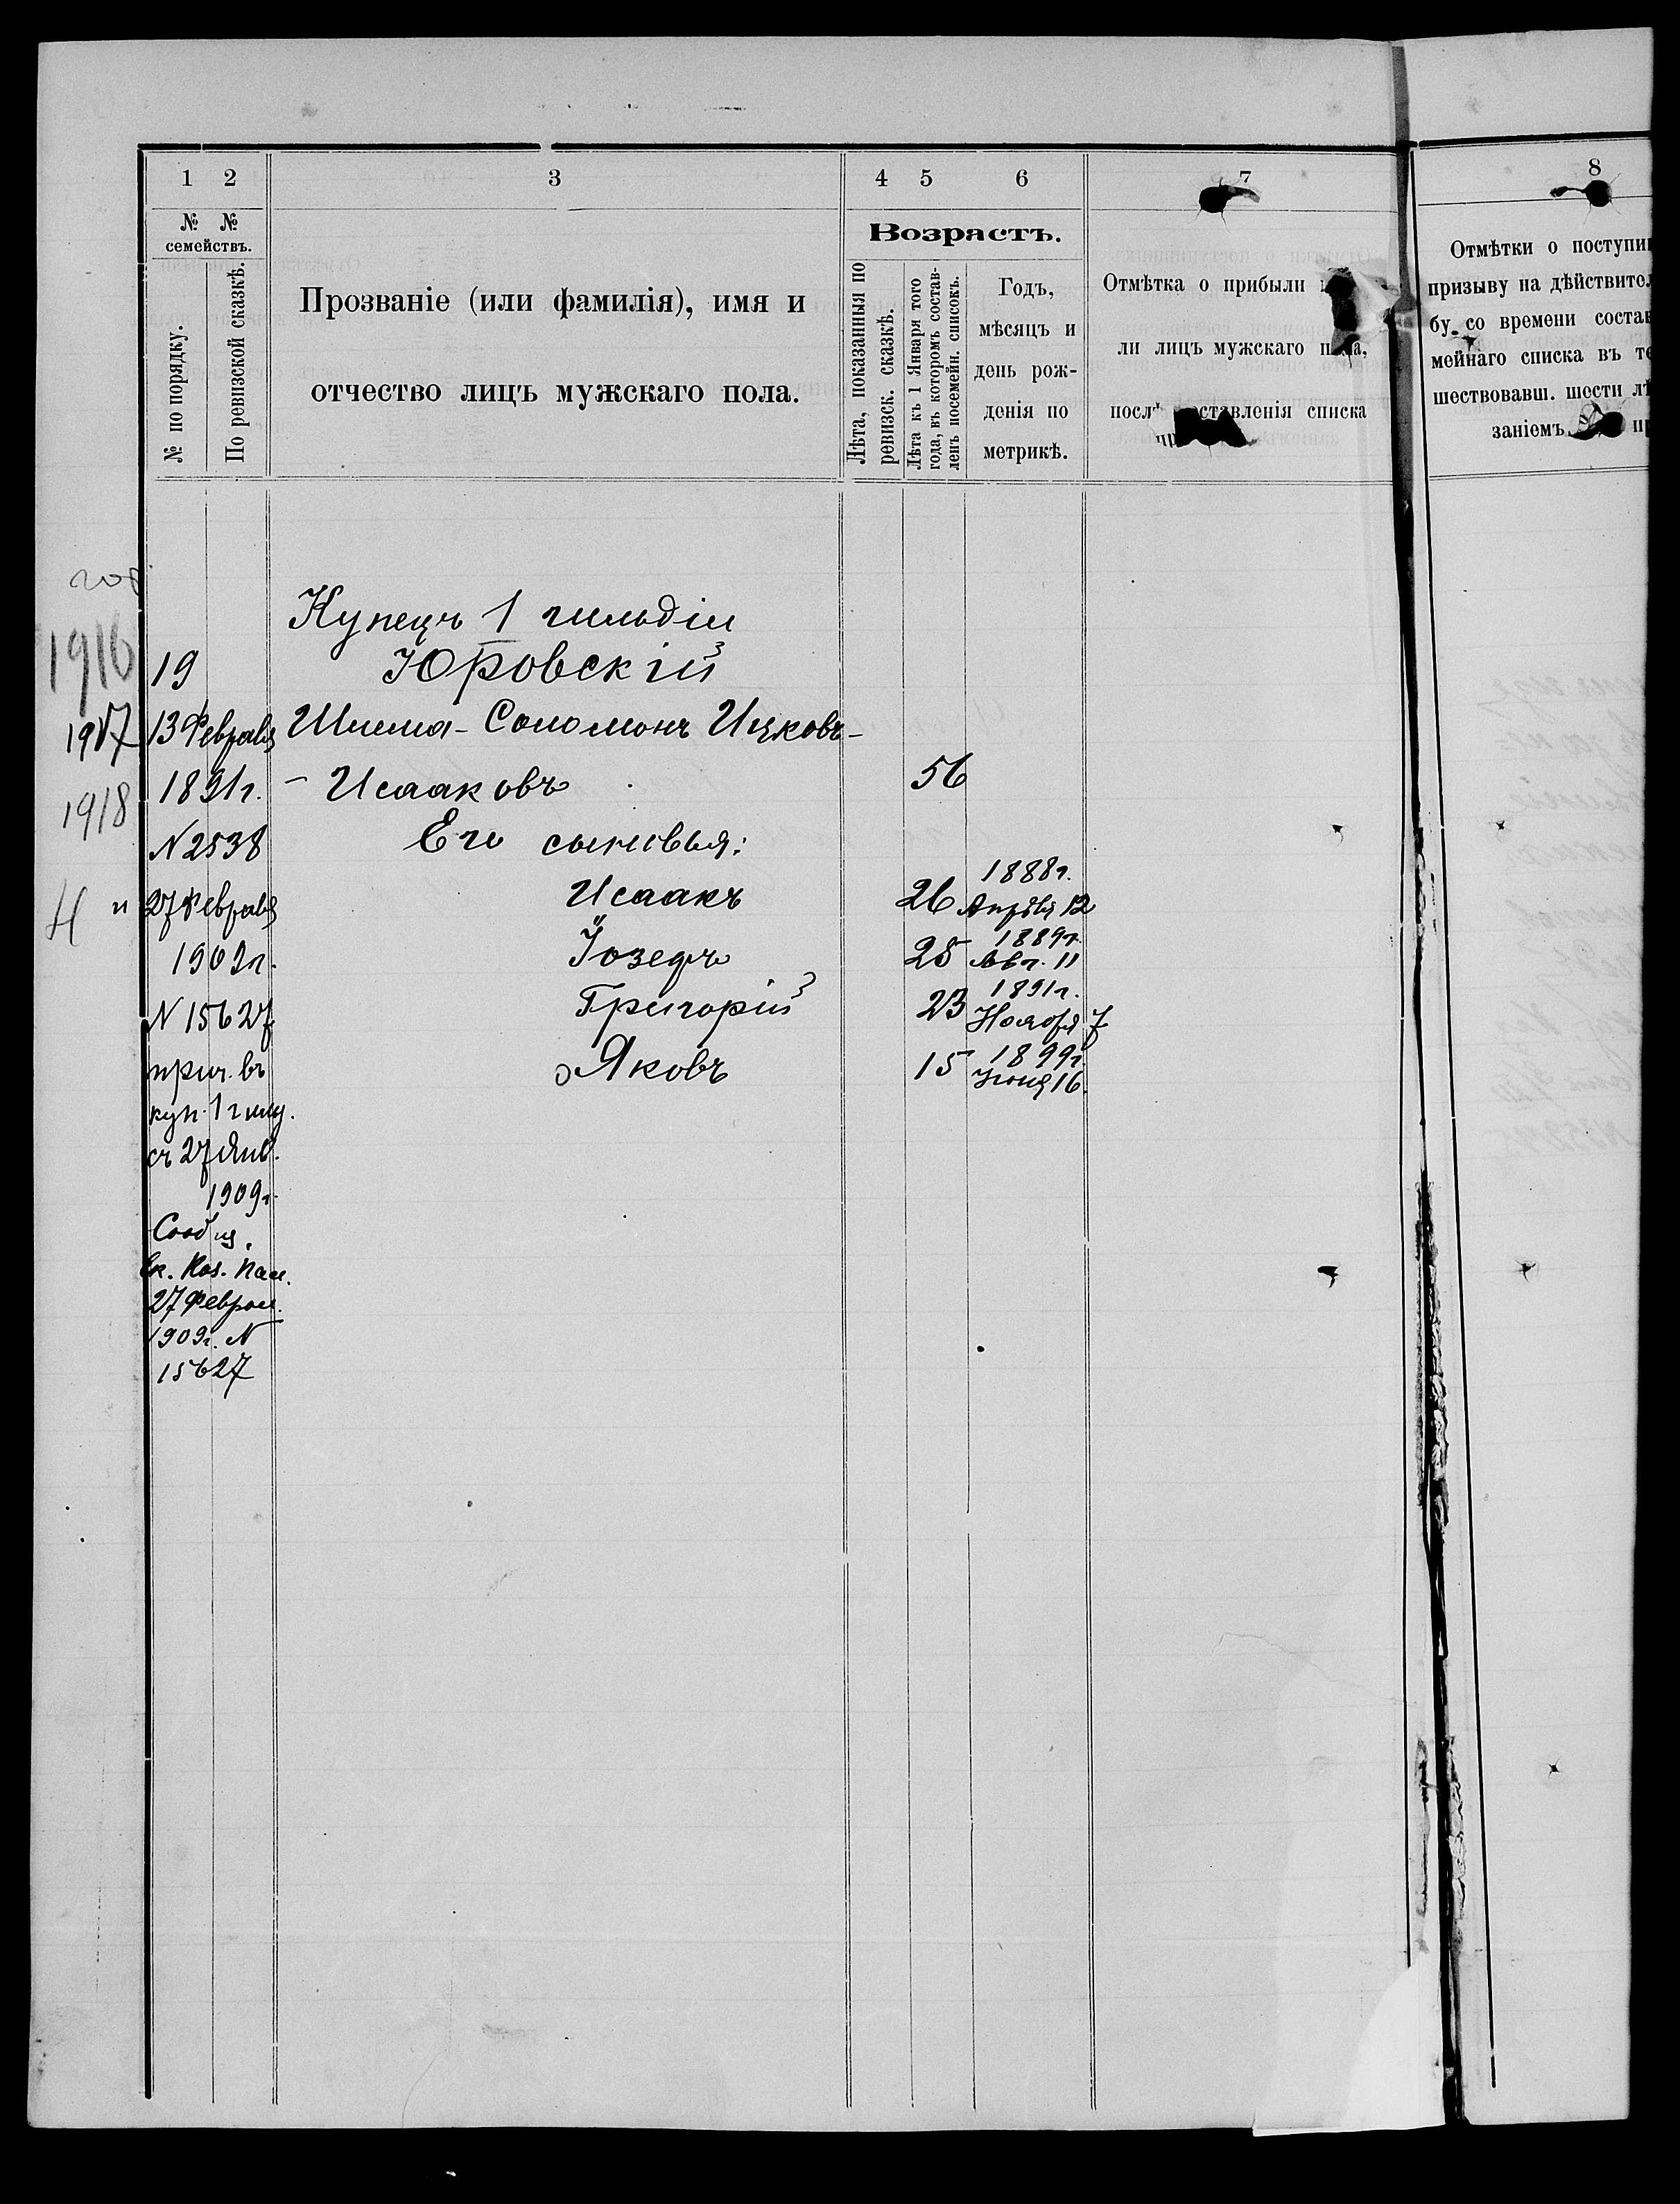 1 2 3 4 5 6 7 8
№ № семействъ.
№ по порядку.
По ревизской сказкѣ.
Прозваніе (или фамилія), имя и
отчество лицъ мужскаго пола.
Возрастъ.
Лѣта, показанныя по
ревизск. сказкѣ.
Лѣта къ 1 Января того
года, въ которомъ состав-
ленъ посемейн. списокъ.
Годъ,
мѣсяцъ и
день рож-
денія по
метрикѣ.
Отмѣтка о прибыли
ли лицъ мужскаго пола,
послѣ составленія списка
Отмѣтки о поступи
призыву на дѣйствител
бу со времени состав
мейнаго списка въ те
шествовавш. шести лѣ
заніемъ
год
1916
1917
1918
Н
19
13 Февраля
1891г.
N 2538
и 27 Февраля
1909г.
N 15627
прич. въ
куп. 1 гильд.
съ 27 Янв.
1909г.
Сообщ.
Ек. Каз. Пал.
27 Феврал.
1909г. N
15627
Купецъ 1 гильдіи
Юровскій
Шлема-Соломонъ Ицковъ-
- Исааковъ 56
Его сыновья:
Исаакъ 26 1888г. Апрѣля 12
Іозефъ 25 1889г. Авг. 11
Григорій 23 1891г. Ноября 7
Яковъ 15 1899г. Іюня 16.